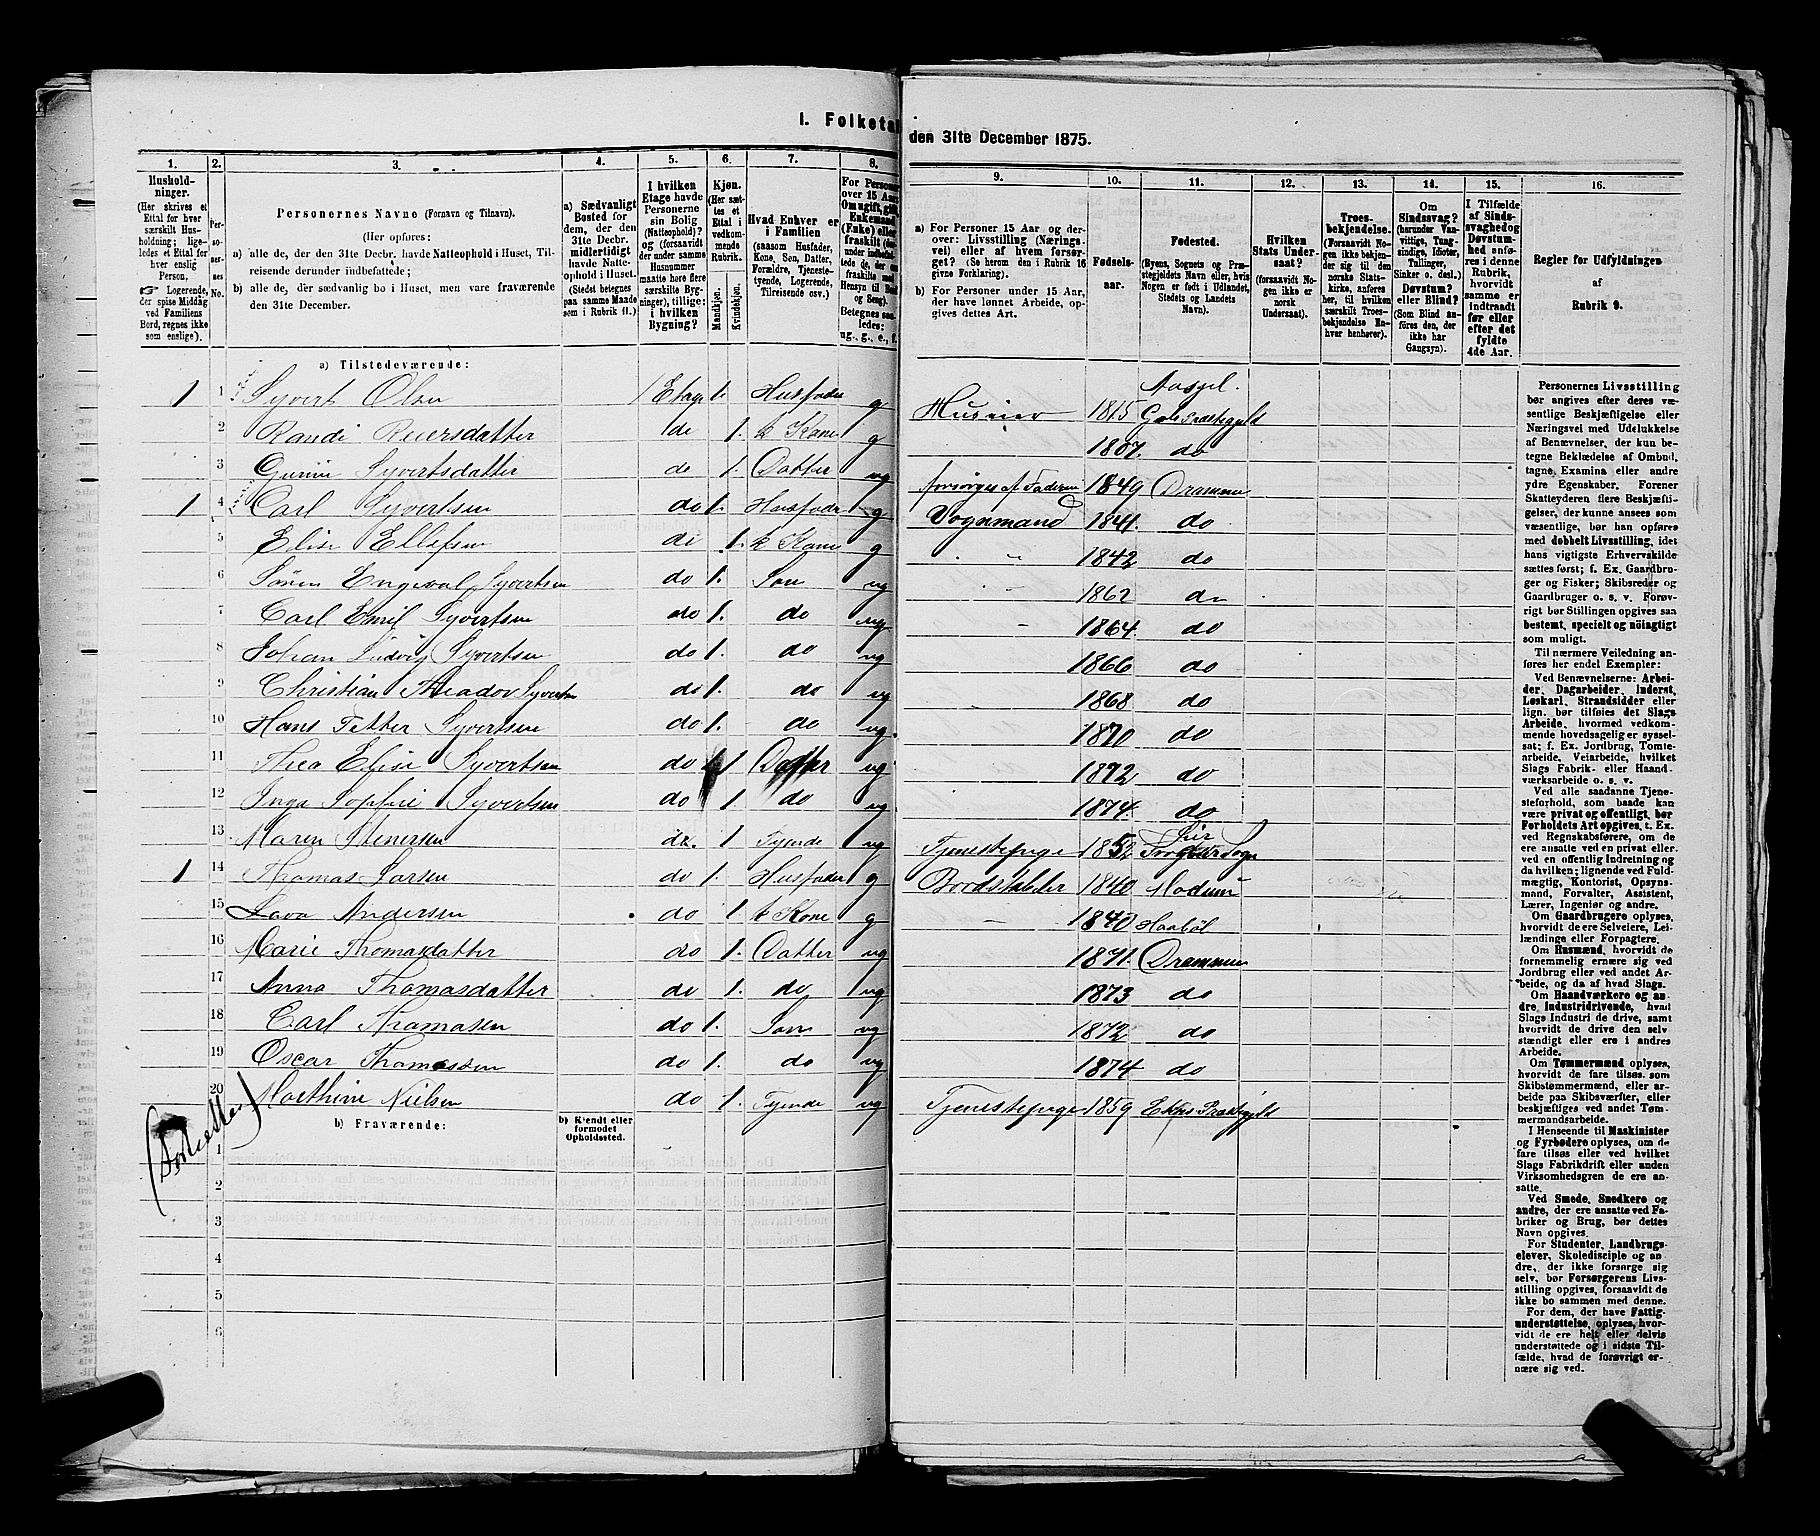 I. Folketal
den 31te December 1875.
1. 2. 3. 4. 5. 6. 7. 8. 9. 10. 11. 12. 13. 14. 15. 16.
Husholdninger.
(Her skrives et Ettal for hver særskilt Husholdning; ligeledes et Ettal for hver enslig Person.
☞ Logerende, der spise Middag ved Familiens Bord, regnes ikke som enslige).
Personernes No.
Personernes Navne (Fornavn og Tilnavn).
(Her opføres:
a) alle de, der den 31te Decbr. havde Natteophold i Huset, Tilreisende derunder indbefattede;
b) alle de, der sædvanlig bo i Huset, men vare fraværende den 31te December.
a) Sædvanligt Bosted for dem, der den 31te Decbr. midlertidigt havde Natteophold i Huset. (Stedet betegnes paa samme Maade som i Rubrik 11.)
I hvilken Etage havde Personerne sin Bolig (Natteophold)? og (forsaavidt der under samme Husnummer maatte høre flere særskilte Bygninger), tillige: i hvilken Bygning?
Kjøn. (Her sættes et Ettal i vedkommende Rubrik.
Mandkjøn. Kvindekjøn.
Hvad Enhver er i Familien
(saasom Husfader, Kone, Søn, Datter, Forældre, Tjenestetyende, Logerende, Tilreisende osv.)
a) For Personer 15 Aar og derover: Livsstilling (Næringsvei) eller af hvem forsørget? (Se herom den i Rubrik 16 givne Forklaring).
b) For Personer under 15 Aar, der have lønnet Arbeide, opgives dettes Art.
Fødselsaar.
Fødested.
(Byens, Sognets og Præstegjeldets Navn eller, hvis Nogen er født i Udlandet, Stedets og Landets Navn).
Hvilken Stats Undersaat?
(forsaavidt Nogen ikke er norsk Undersaat).
Troesbekjendelse.
(Forsaavidt Nogen ikke bekjender sig til den norske Statskirke, anføres her, til hvilken særskilt Troesbekjendelse Enhver henhører).
Om Sindssvag? (herunder Vanvittige, Tungsindige, Idioter, Tullinger, Sinker o. desl.). Døvstum? eller Blind? (Som Blind anføres den, der ikke har Gangsyn).
I Tilfælde af Sindssvaghed og Døvstumhed anføres i denne Rubrik, hvorvidt samme er indtraadt før eller efter det fyldte 4de Aar.
Regler for Udfyldningen af Rubrik 9.
a) Tilstedeværende:
1 1 Syvert Olsen 1 Etage 1. Husfader g Huseier 1815
2 Randi Reiersdatter do 1. k Kone g 1807. do
3 Gunn Syvertsdatter do 1. Datter ug forsørges af Faderen 1849 Drammen
1 4 Carl Syvertsen do 1. Husfader g Vognmand 1841. do
5 Elise Ellefsen do 1. k Kone g 1842 do
6 Søren Engeval Syvertsen do 1. Søn ug 1862 do
7 Carl Emil Syvertsen do 1. do ug 1864. do
8 Johan Ludvig Syvertsen do 1. do ug 1866 do
9 Christian Theador Syvertsen do 1. do ug 1868 do
10 Hans Petter Syvertsen do 1. do ug 1870 do
11 Thea Elise Syvertsen do 1 Datter ug 1872 do
12 Inga Sophie Syvertsen do 1. do ug 1874. do
13 Maren Stenersen do. 1 Tyende ug Tjenestepige 1852 Lier
1 14 Thomas Larsen do 1. Husfader g Bordstabler 1840 Modum
15 Lava Andersen do 1. k Kone g 1840 Haabøl
16 Marie Thomasdatter do 1. Datter ug 1871. Drammen
17 Anna Thomasdatter do 1. do ug 1873 do
18 Carl Thomasen do 1. Søn ug 1872 do
19 Oscar Thomassen do 1. do ug 1874 do
20 Marthine Nielsen do 1. Tyende ug Tjenestepige 1859
b) Fraværende:
b) Kjendt eller formodet Opholdssted.
1
2
3
4
5
6
Personernes Livsstilling bør angives efter deres væsentlige Beskjæftigelse eller Næringsvei med Udelukkelse af Benævnelser, der kun betegne Beklædelse af Ombud, tagne Examina eller andre ydre Egenskaber. Forener Skatteyderen flere Beskjæftigelser, der kunne ansees som væsentlige, bør han opføres med dobbelt Livsstilling, idet hans vigtigste Erhvervskilde sættes først; f. Ex. Gaardbruger og Fisker; Skibsreder og Gaardbruger o. s. v. Forøvrigt bør Stillingen opgives saa bestemt, specielt og nøiagtigt som muligt.
Til nærmere Veiledning anføres her endel Exempler:
Ved Benævnelserne: Arbeider, Dagarbeider, Inderst, Løskarl, Strandsidder eller lign. bør tilføies det Slags Arbeide, hvormed vedkommende hovedsagelig er sysselsat; f. Ex. Jordbrug, Tomtearbeide, Veiarbeide, hvilket Slags Fabrik- eller Haandværksarbeide o. s. v.
Ved alle saadanne Tjenesteforhold, som baade kan være privat og offentligt, bør Forholdets Art opgives, t. Ex. ved Regnskabsførere, om de ere ansatte ved en privat eller ved en offentlig Indretning og da hvilken; lignende ved Fuldmægtig, Kontorist, Opsynsmand, Forvalter, Assistent, Lærer, Ingeniør og andre.
Om Gaardbrugere oplyses, hvorvidt de ere Selveiere, Leilændinge eller Forpagtere.
Om Husmænd, hvorvidt de fornemmelig ernære sig ved Jordbrug eller ved andet Arbeide, og da af hvad Slags.
Om Haandværkere og andre Industridrivende, hvad Slags Industri de drive, samt hvorvidt de drive den selvstændigt eller ere i andres Arbeide.
Om Tømmermænd oplyses, hvorvidt de fare tilsøs som Skibstømmermænd, eller arbeide paa Skibsværfter, eller beskjæftiges ved andet Tømmermandsarbeide.
I Henseende til Maskinister og Fyrbødere oplyses, om de fare tilsøs eller ved hvilket Slags Fabrikdrift eller anden Virksomhedsgren de ere ansatte.
Ved Smede, Snedkere og andre, der ere ansatte ved Fabriker og Brug, bør dettes Navn opgives.
For Studenter, Landbrugselever, Skoledisciple og andre, der ikke forsørge sig selv, bør Forsørgerens Livsstilling opgives, forsaavidt de ikke bo sammen med denne.
For dem, der have Fattigunderstøttelse, oplyses, hvorvidt de ere helt eller delvis understøttede og i sidste Tilfælde, hvad de forøvrigt ernære sig ved.